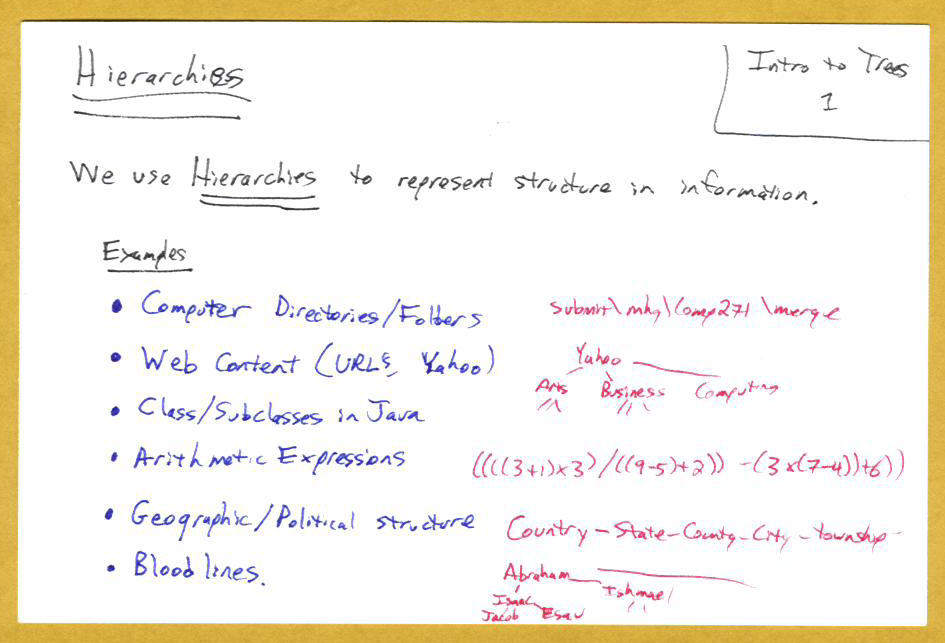 Hierarchies
Intro to Trees
1
We use Hierarchies to represent structure in information.
Examples
• Computer Directories/Folders
submit\mhg\Comp271\merge
• Web Content (URLs, Yahoo)
Yahoo
Arts Business Computing
• Class/Subclasses in Java
• Arithmetic Expressions
((((3+1)x3)/((9-5)+2)) -(3x(7-4))+6))
• Geographic/Political structure
Country-State-County-City-township-
• Blood lines.
Abraham
Isaac Ishmael
Jacob Esau